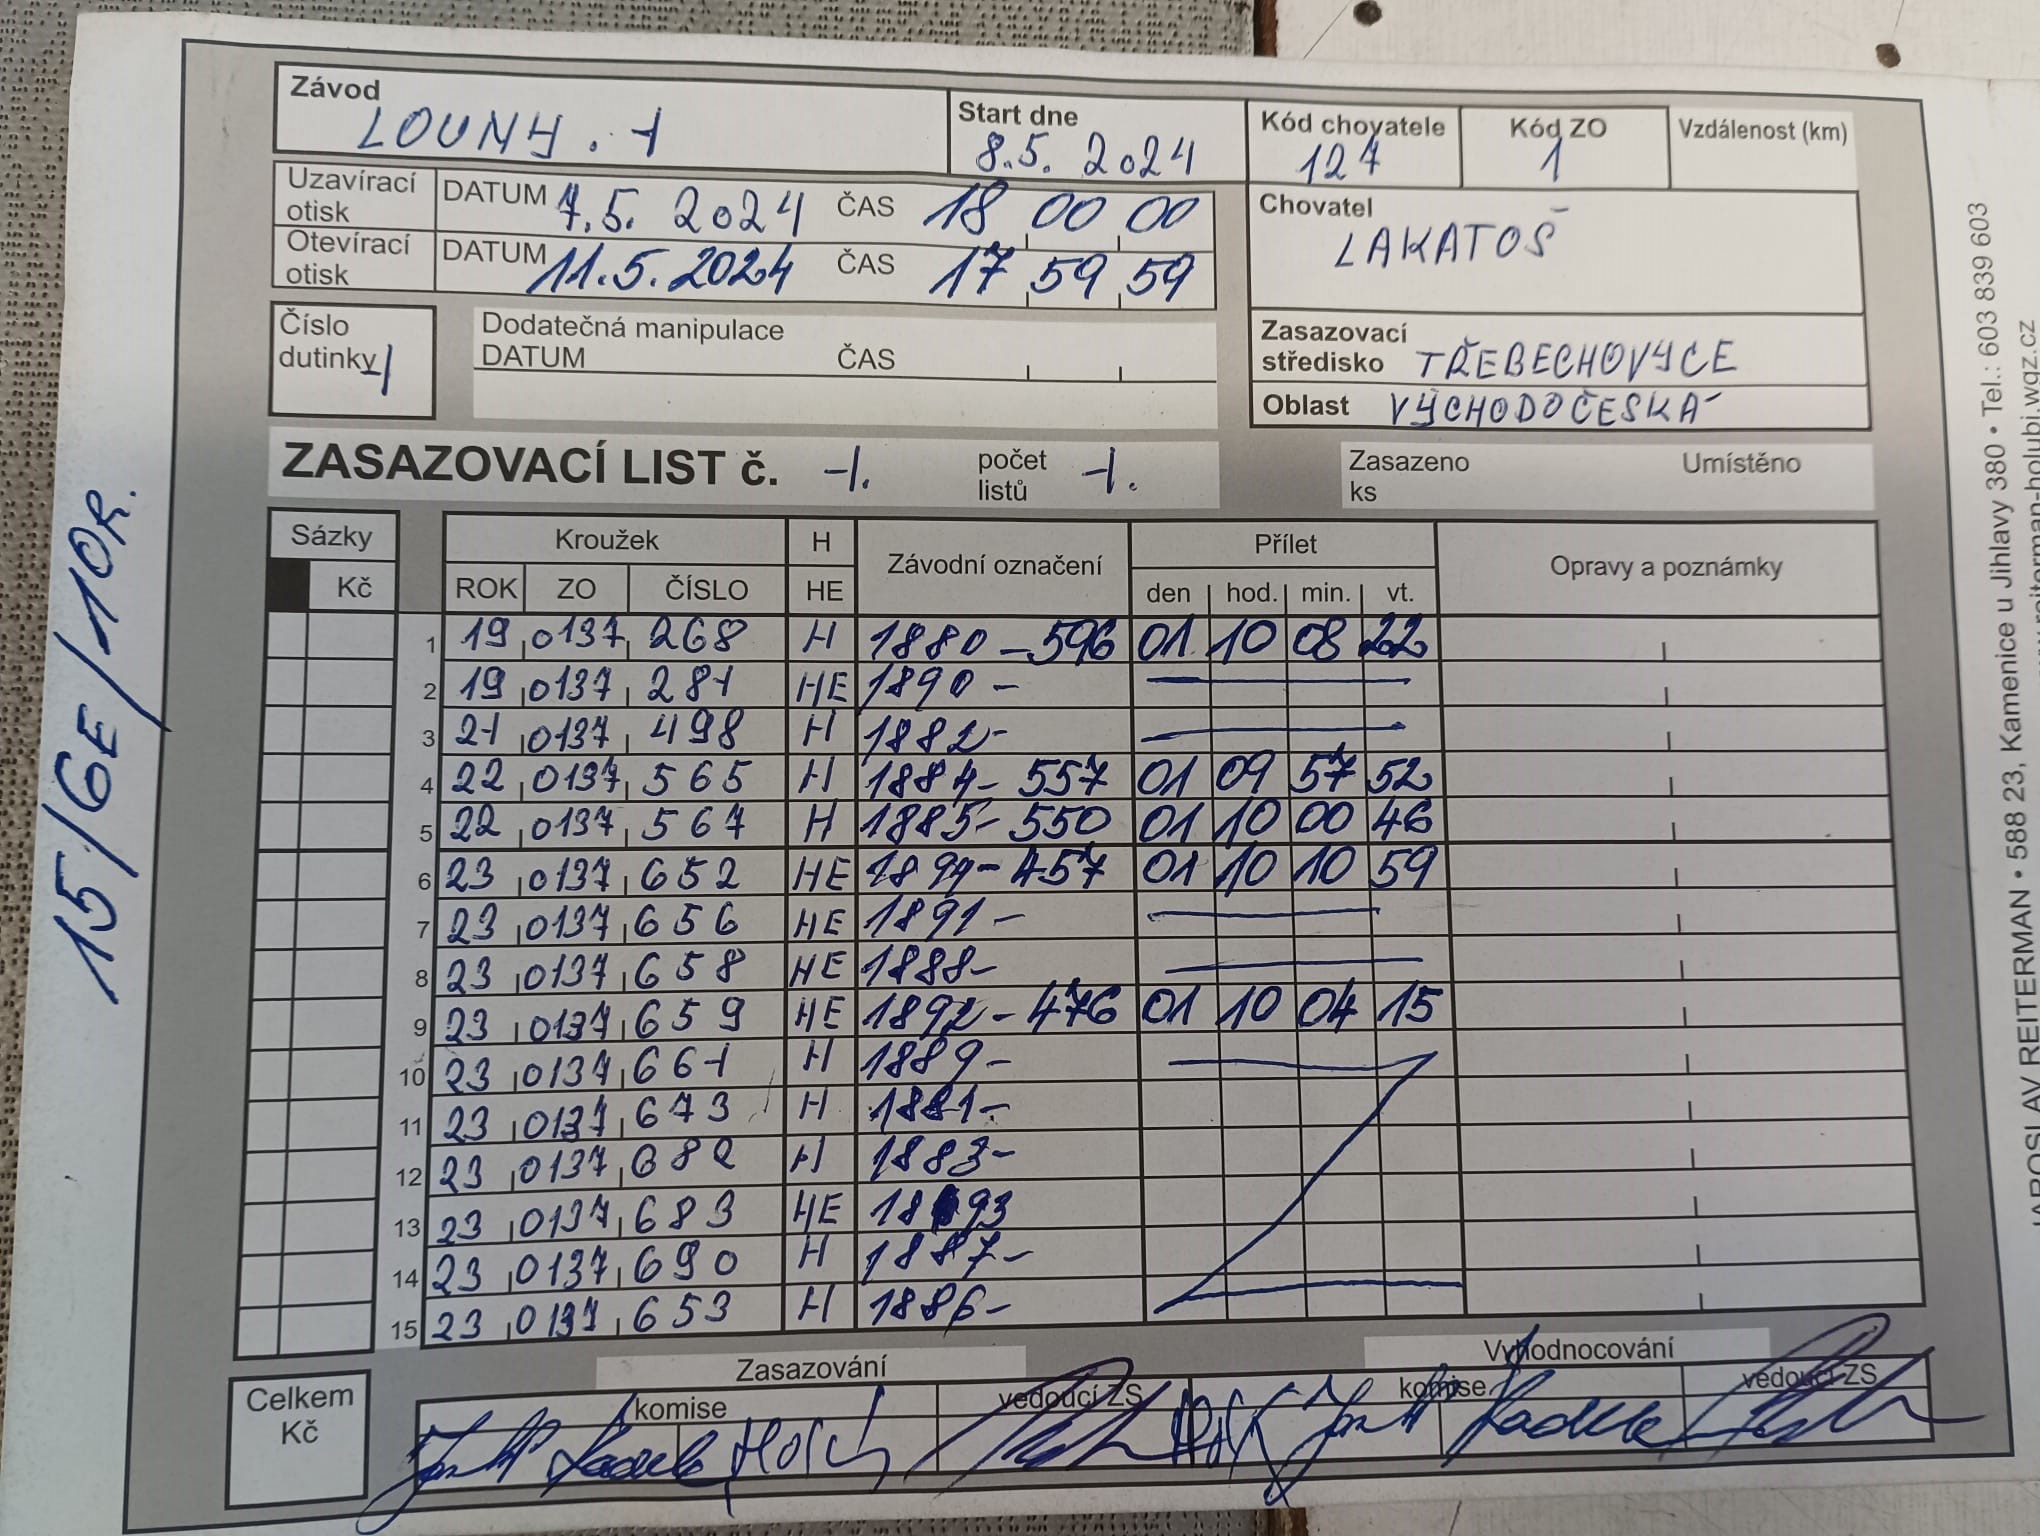 Závod
LOUNY . 1
Start dne
8.5. 2024
Kód chovatele
127
Kód ZO
1
Vzdálenost (km)
Uzavírací otisk DATUM 7.5. 2024 ČAS 18 00 00
Otevírací otisk DATUM 11.5.2024 ČAS 17 59 59
Chovatel
LAKATOŠ
Číslo dutinky 1
Dodatečná manipulace
DATUM ČAS
Zasazovací středisko TŘEBECHOVYCE
Oblast VÝCHODOČESKÁ
ZASAZOVACÍ LIST č. 1. počet listů 1.
Zasazeno ks Umístěno
15/6E/10R.
Sázky Kroužek H Závodní označení Přílet Opravy a poznámky
Kč ROK ZO ČÍSLO HE den hod. min. vt.
1 19 0137 268 H 1880 - 596 01 10 08 22
2 19 0137 281 HE 1890 -
3 21 0137 498 H 1882 -
4 22 0137 565 H 1884 - 557 01 09 57 52
5 22 0137 567 H 1885 - 550 01 10 00 46
6 23 0137 652 HE 1894 - 457 01 10 10 59
7 23 0137 656 HE 1891 -
8 23 0137 658 HE 1888 -
9 23 0137 659 HE 1892 - 476 01 10 04 15
10 23 0137 661 H 1889 -
11 23 0137 673 H 1881 -
12 23 0137 682 H 1883 -
13 23 0137 683 HE 1893
14 23 0137 690 H 1887 -
15 23 0137 653 H 1886 -
Celkem Kč
Zasazování
komise vedoucí ZS
Vyhodnocování
komise vedoucí ZS
JAROSLAV REITERMAN • 588 23, Kamenice u Jihlavy 380 • Tel.: 603 839 603